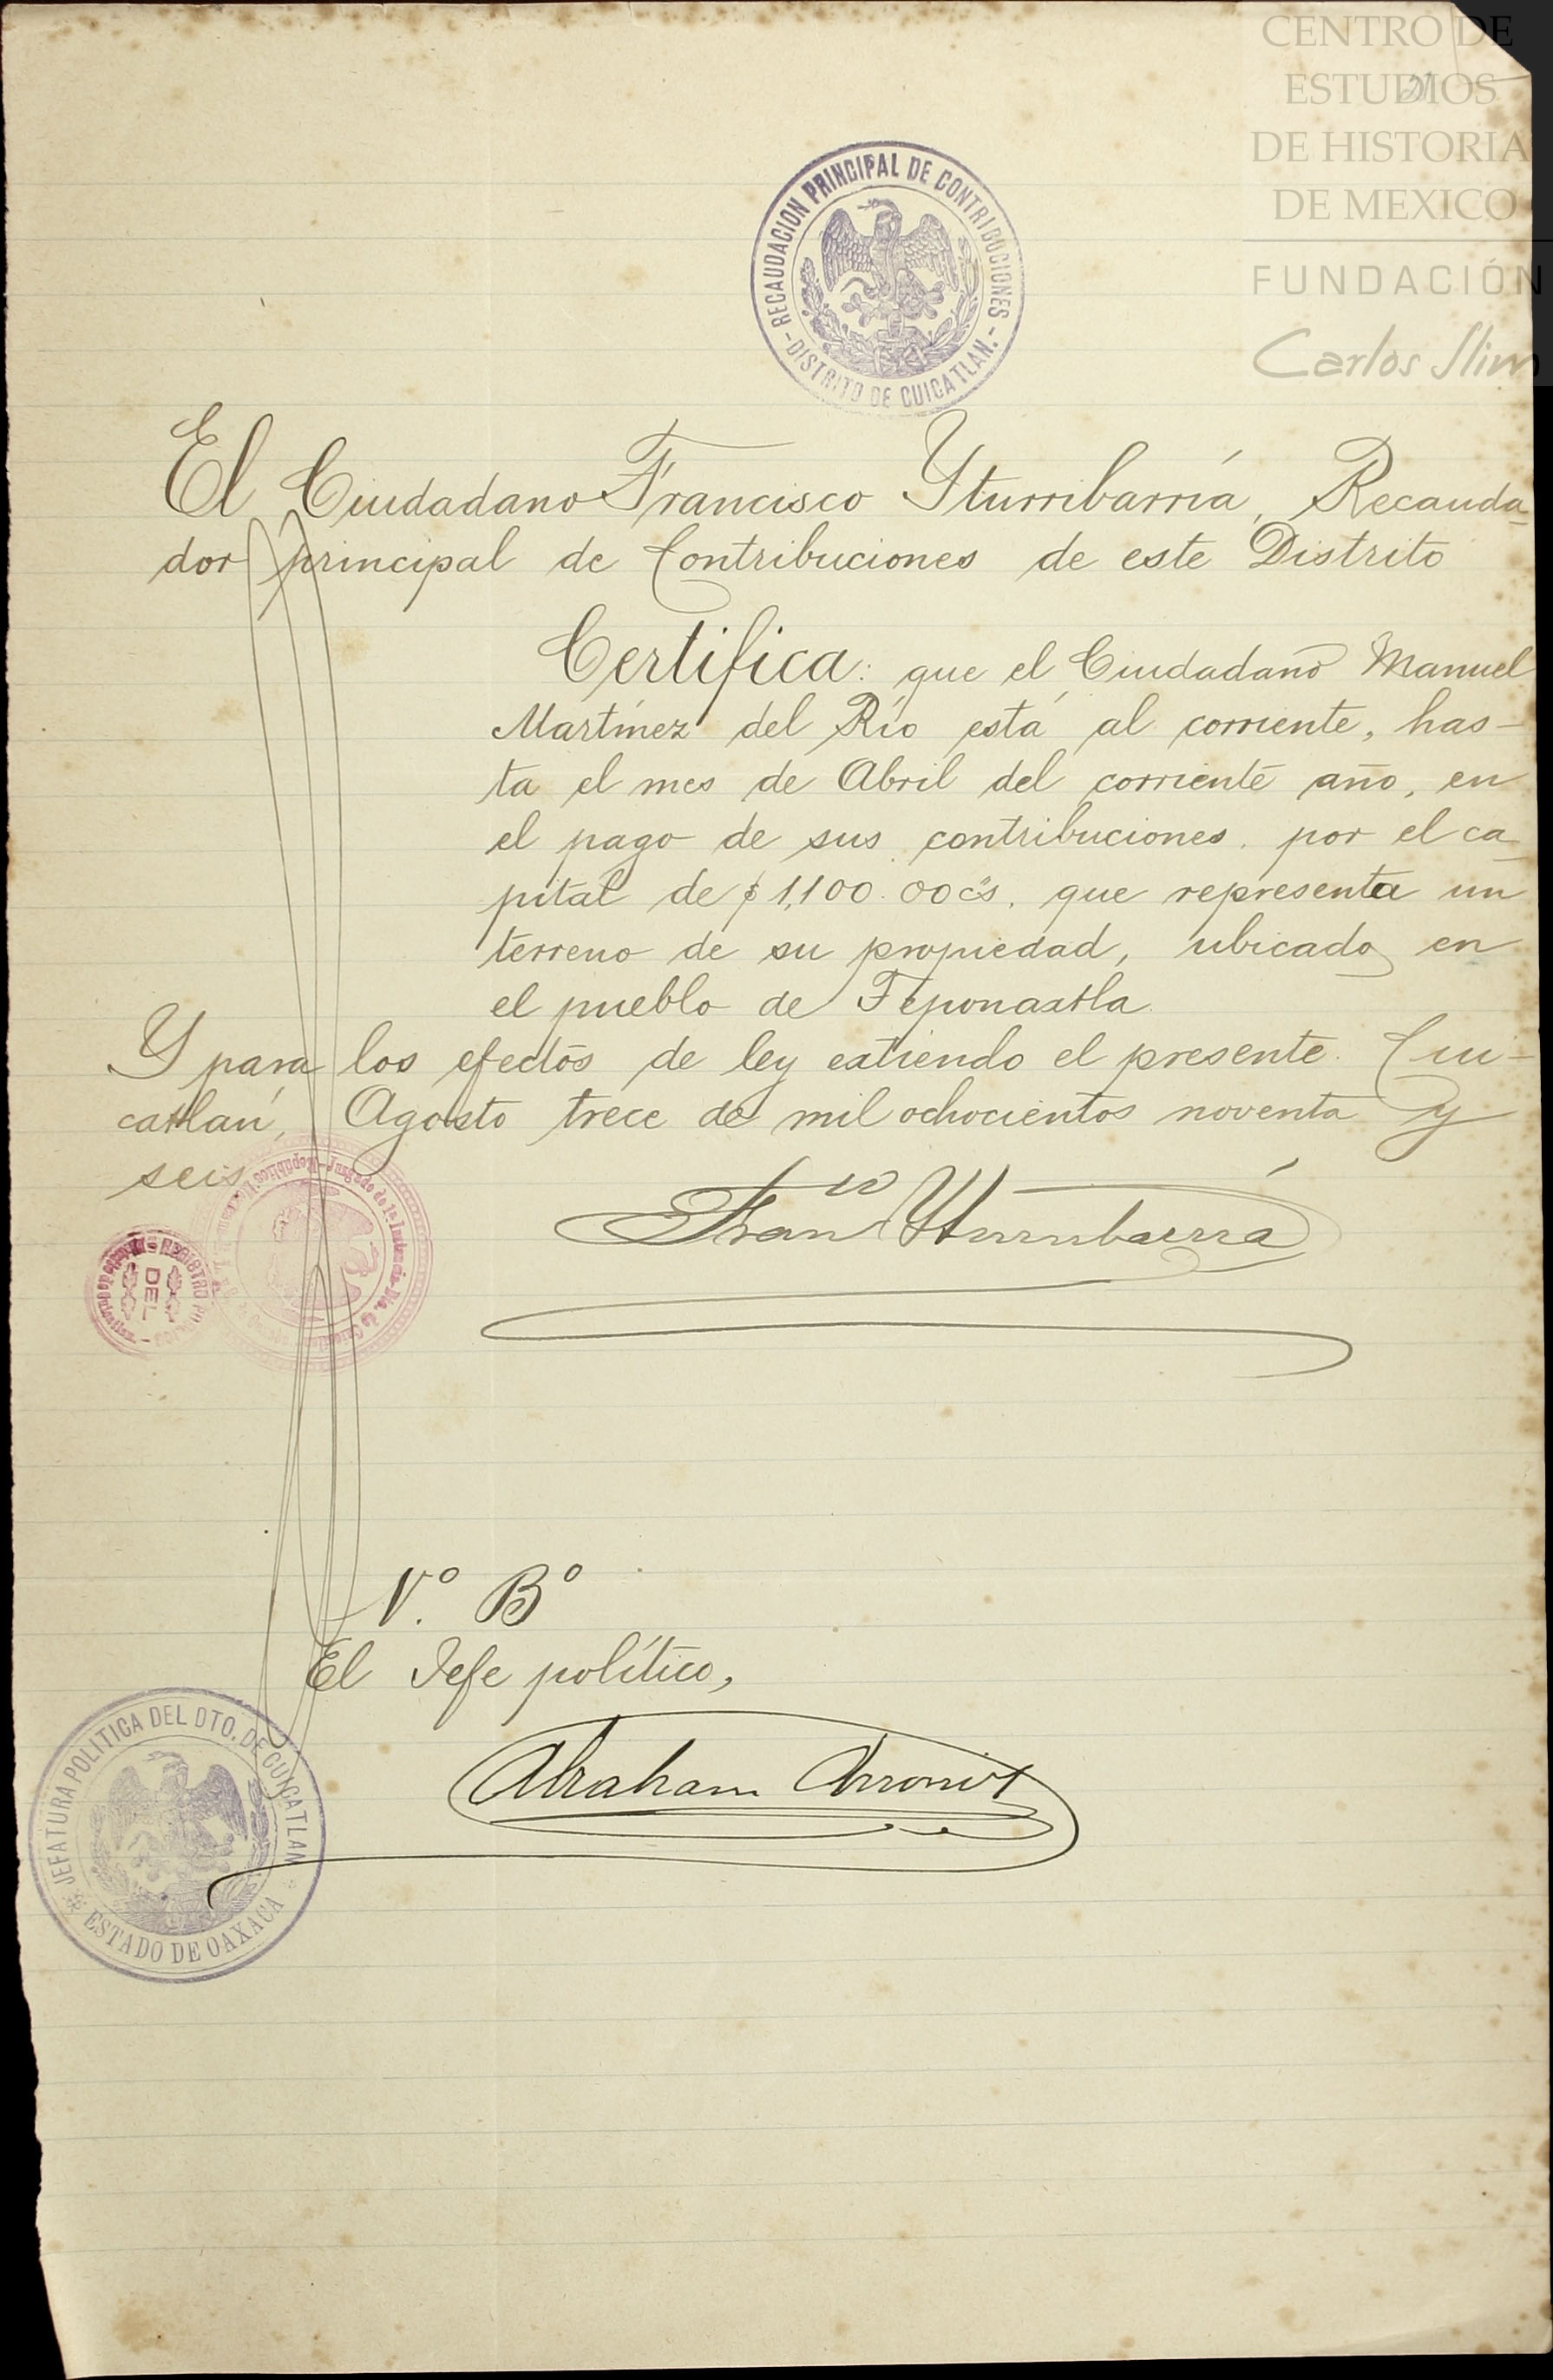 CENTRO DE
ESTUDIOS
DE HISTORIA
DE MEXICO
FUNDACIÓN
Carlos Slim
RECAUDACION PRINCIPAL DE CONTRIBUCIONES
- DISTRITO DE CUICATLAN. -
El Ciudadano Francisco Yturribarría, Recauda-
dor principal de Contribuciones de este Distrito
Certifica: que el Ciudadano Manuel
Martínez del Río está al corriente, has-
ta el mes de Abril del corriente año, en
el pago de sus contribuciones, por el ca-
pital de $1,100.00 cs. que representa un
terreno de su propiedad, ubicado en
el pueblo de Teponaxtla.
Y para los efectos de ley extiendo el presente. Cui-
catlán, Agosto trece de mil ochocientos noventa y
seis
Franco Yturribarría
REGISTRO PUBLICO
DEL
Juzgado de 1a. Instancia
V.o B.o
El Jefe político,
Abraham Arróniz
JEFATURA POLITICA DEL DTO. DE CUICATLAN
ESTADO DE OAXACA